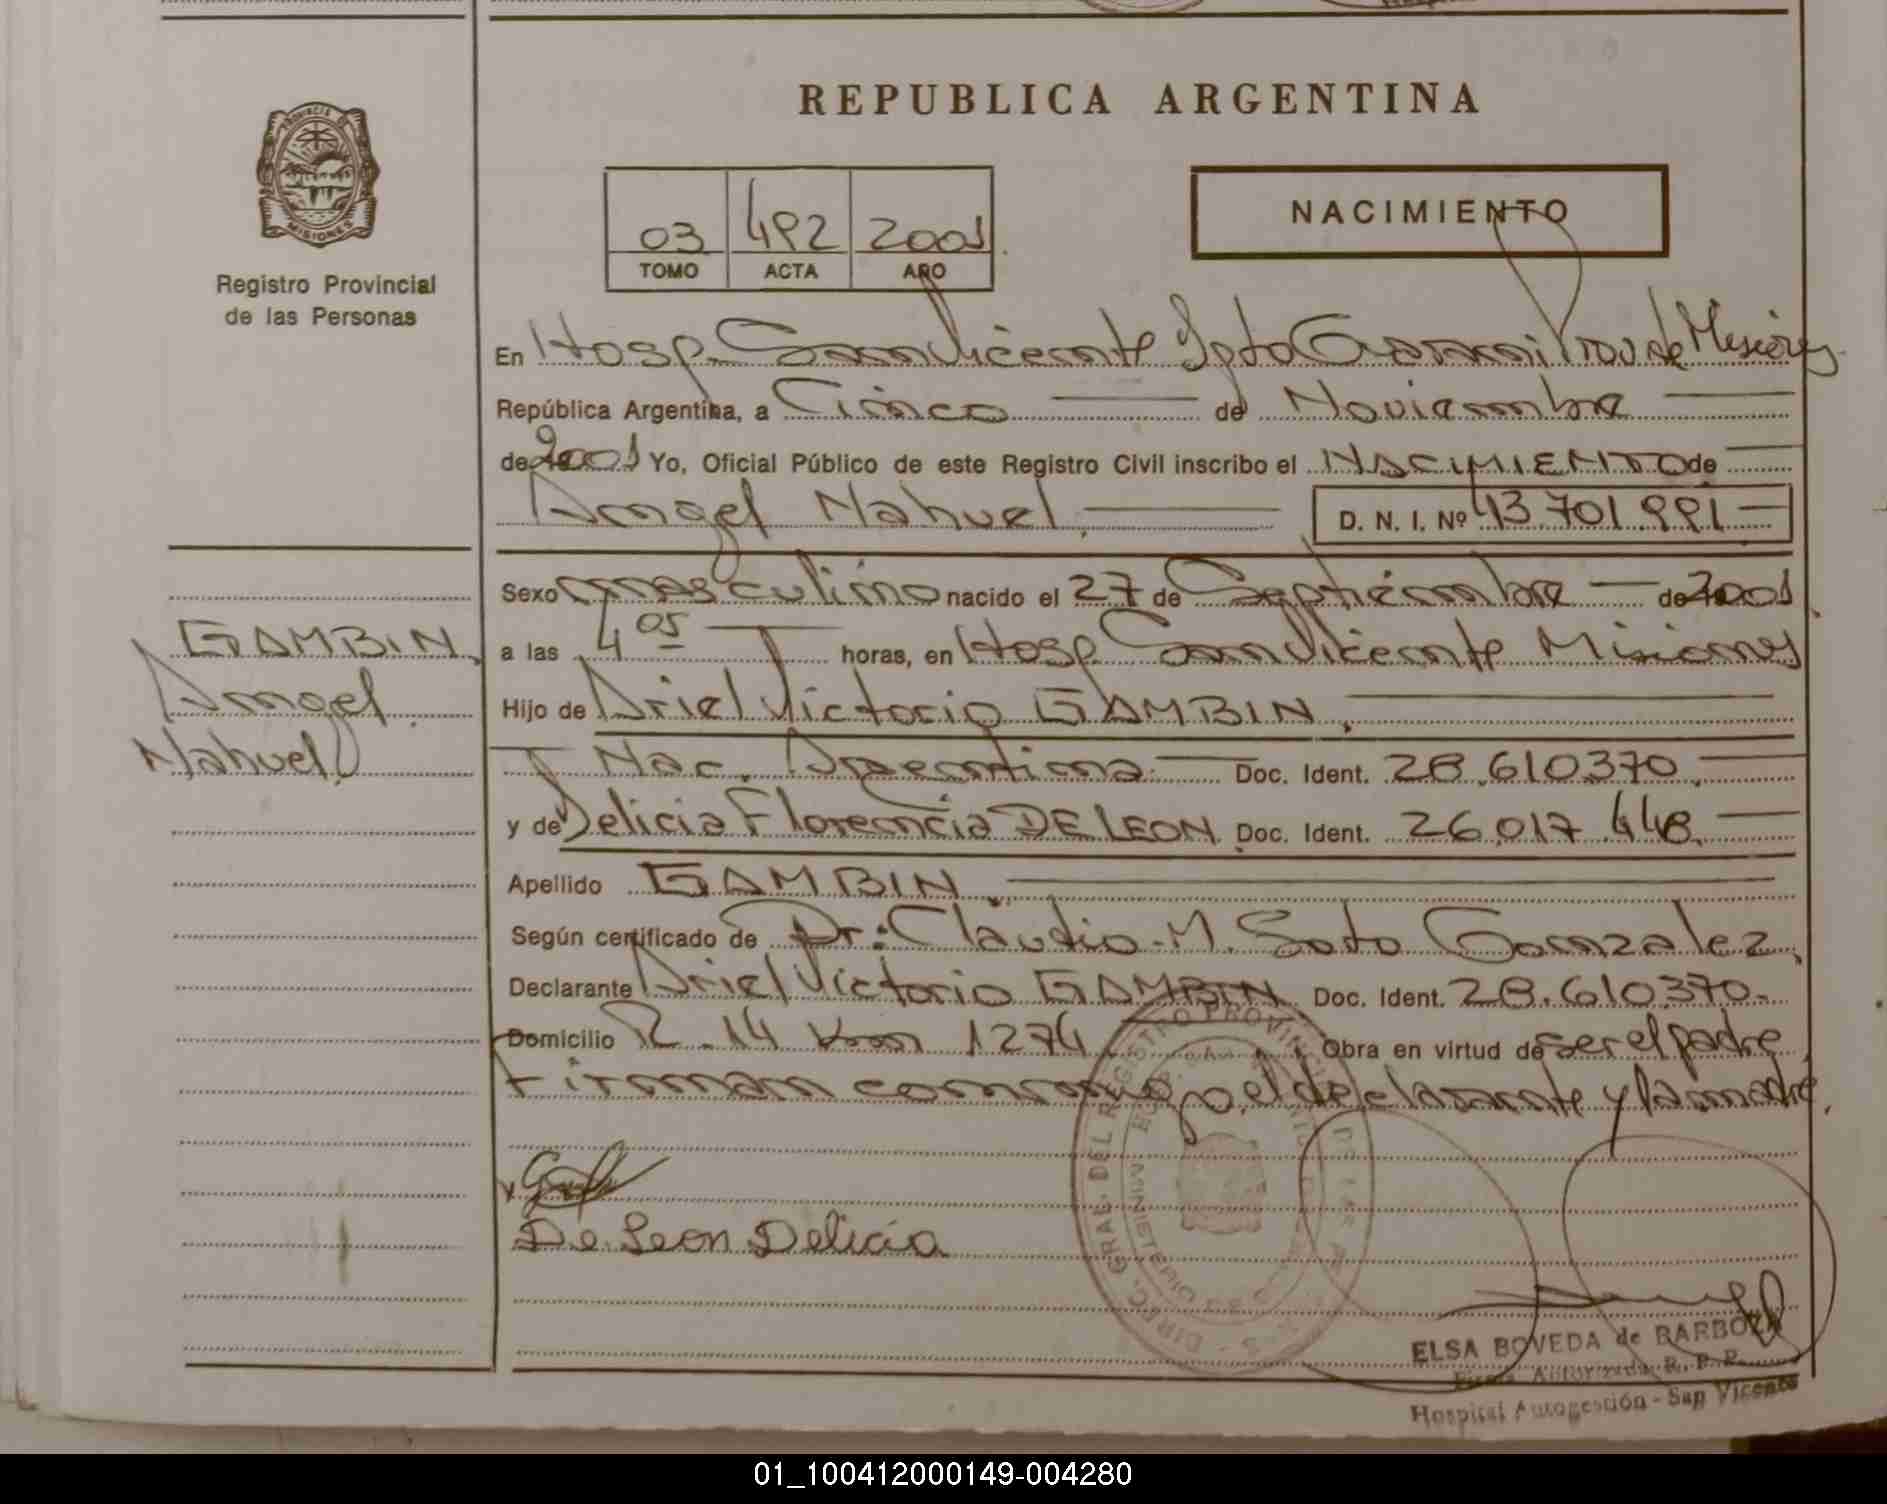 PROVINCIA DE
MISIONES
Registro Provincial
de las Personas
REPUBLICA ARGENTINA
03 492 2001
TOMO ACTA AÑO
NACIMIENTO
En Hosp. San Vicente Dpto Guarani Prov de Misiones
República Argentina, a Cinco de Noviembre
de 2001 Yo, Oficial Público de este Registro Civil inscribo el NACIMIENTO de
Angel Nahuel. D. N. I. Nº 43.701.991
Sexo masculino nacido el 27 de Septiembre de 2001
a las 4 05 horas, en Hosp San Vicente Misiones
Hijo de Ariel Victorio GAMBIN.
Nac. Argentina Doc. Ident. 28.610370.
y de Delicia Florencia DE LEON. Doc. Ident. 26.017.448.
Apellido GAMBIN.
Según certificado de Dr: Claudio M. Soto Gonzalez.
Declarante Ariel Victorio GAMBIN Doc. Ident. 28.610370.
Domicilio R. 14 Km 1274 Obra en virtud de ser el padre.
Firman conmigo, el declarante y la madre.
De Leon Delicia
GAMBIN,
Angel
Nahuel.
DIREC. GRAL. DEL REGISTRO PROVINCIAL DE LAS
MINISTERIO
ELSA BOVEDA de BARBOZA
Firma Autorizada R. P. P.
Hospital Autogestión - San Vicente
01_100412000149-004280